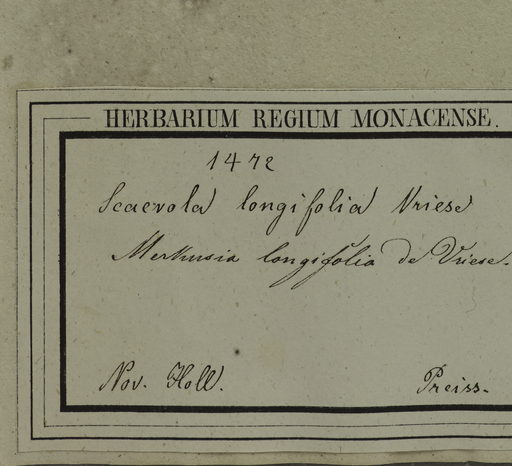 HERBARIUM REGIUM MONACENSE.
1472
Scaevola longifolia Vriese
Merkusia longifolia de Vriese.
Nov. Holl. Preiss.